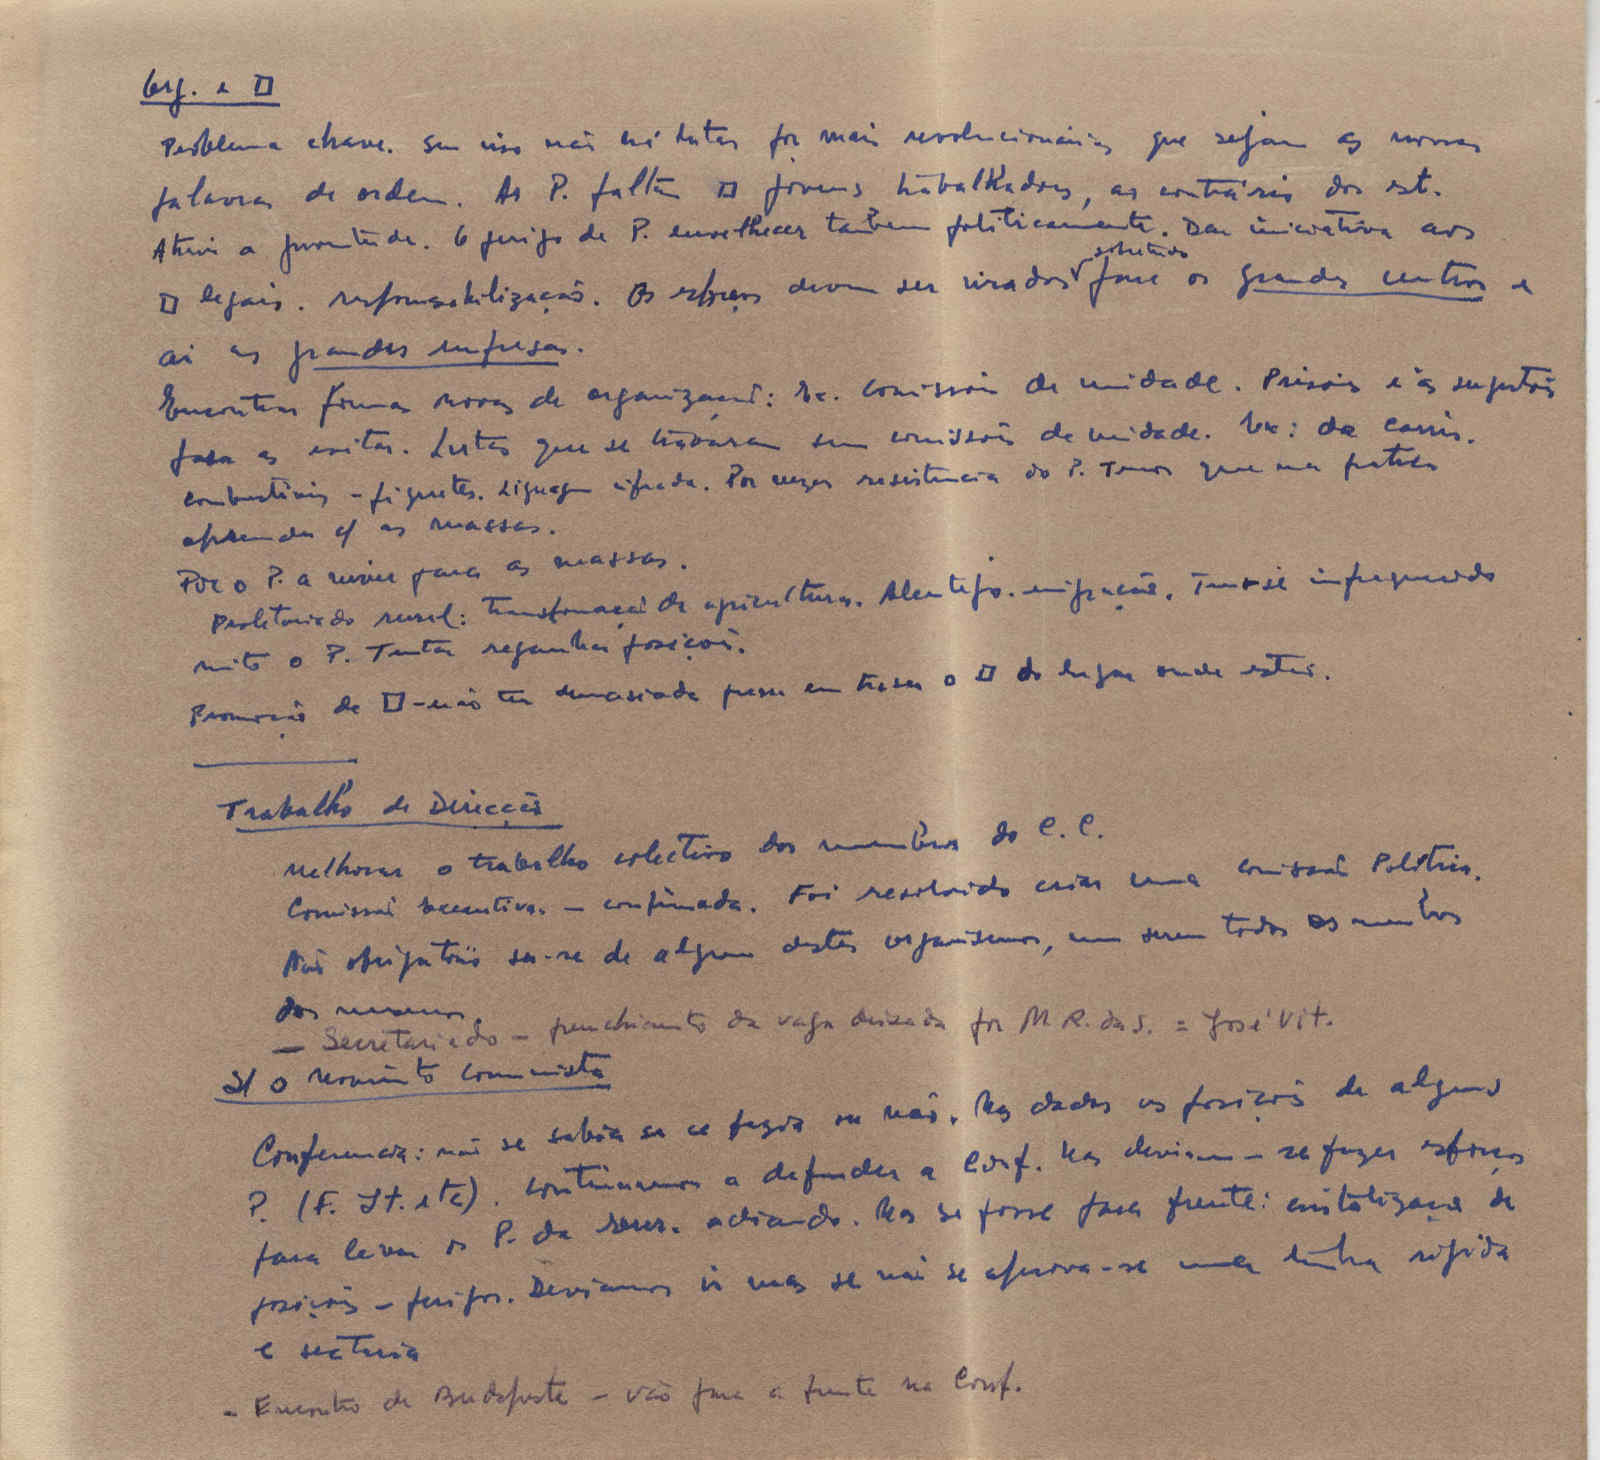 Org. e □
Problema chave. Sem isso não há lutas por mais revolucionárias que sejam as nossas
palavras de ordem. Ao P. faltam □ jovens trabalhadores, ao contrário dos est.
Atrair a juventude. O perigo de P. envelhecer também politicamente. Dar iniciativa aos
□ legais. responsabilização. Os esforços devem ser virados sobretudo para os grandes centros e
aí as grandes empresas.
Encontrar formas novas de organização: Ex. Comissões de unidade. Prisões e as sugestões
para as evitar. Lutas que se travaram sem comissões de unidade. Ex: da Carris.
Combustíveis - piquetes. Liguagem cifrada. Por vezes resistencia do P. Temos que na prática
aprender c/ as massas.
Pôr o P. a viver para as massas.
Proletariado rural: transformação da agricultura. Alentejo. emigração. Tem-se infraquecido
muito o P. Tentar reganhar posições.
Promoção de □ - não ter demasiada pressa em trazer o □ do lugar onde está.
Trabalho de Direcção
Melhorar o trabalho colectivo dos membros do C.C.
Comissão Executiva. - confirmada. Foi resolvido criar uma comissão Política.
Não obrigatório ser-se de algum destes organismos, nem serem todos os membros
dos mesmos.
- Secretariado - preenchimento da vaga deixada por M.R. da S. = José Vit.
S/ o Movimento Comunista
Conferencia: não se sabia se se fazia ou não. Mas dadas as posições de alguns
P. (F. It. etc). Continuaremos a defender a Conf. Mas deviam-se fazer esforços
para levar os P. da adiando. Mas se fosse para frente: cristalização de
posições - perigos. Deviamos ir mas se não se aprova-se uma linha rígida
e sectária
- Encontro de Budapeste - vão para a frente na Conf.